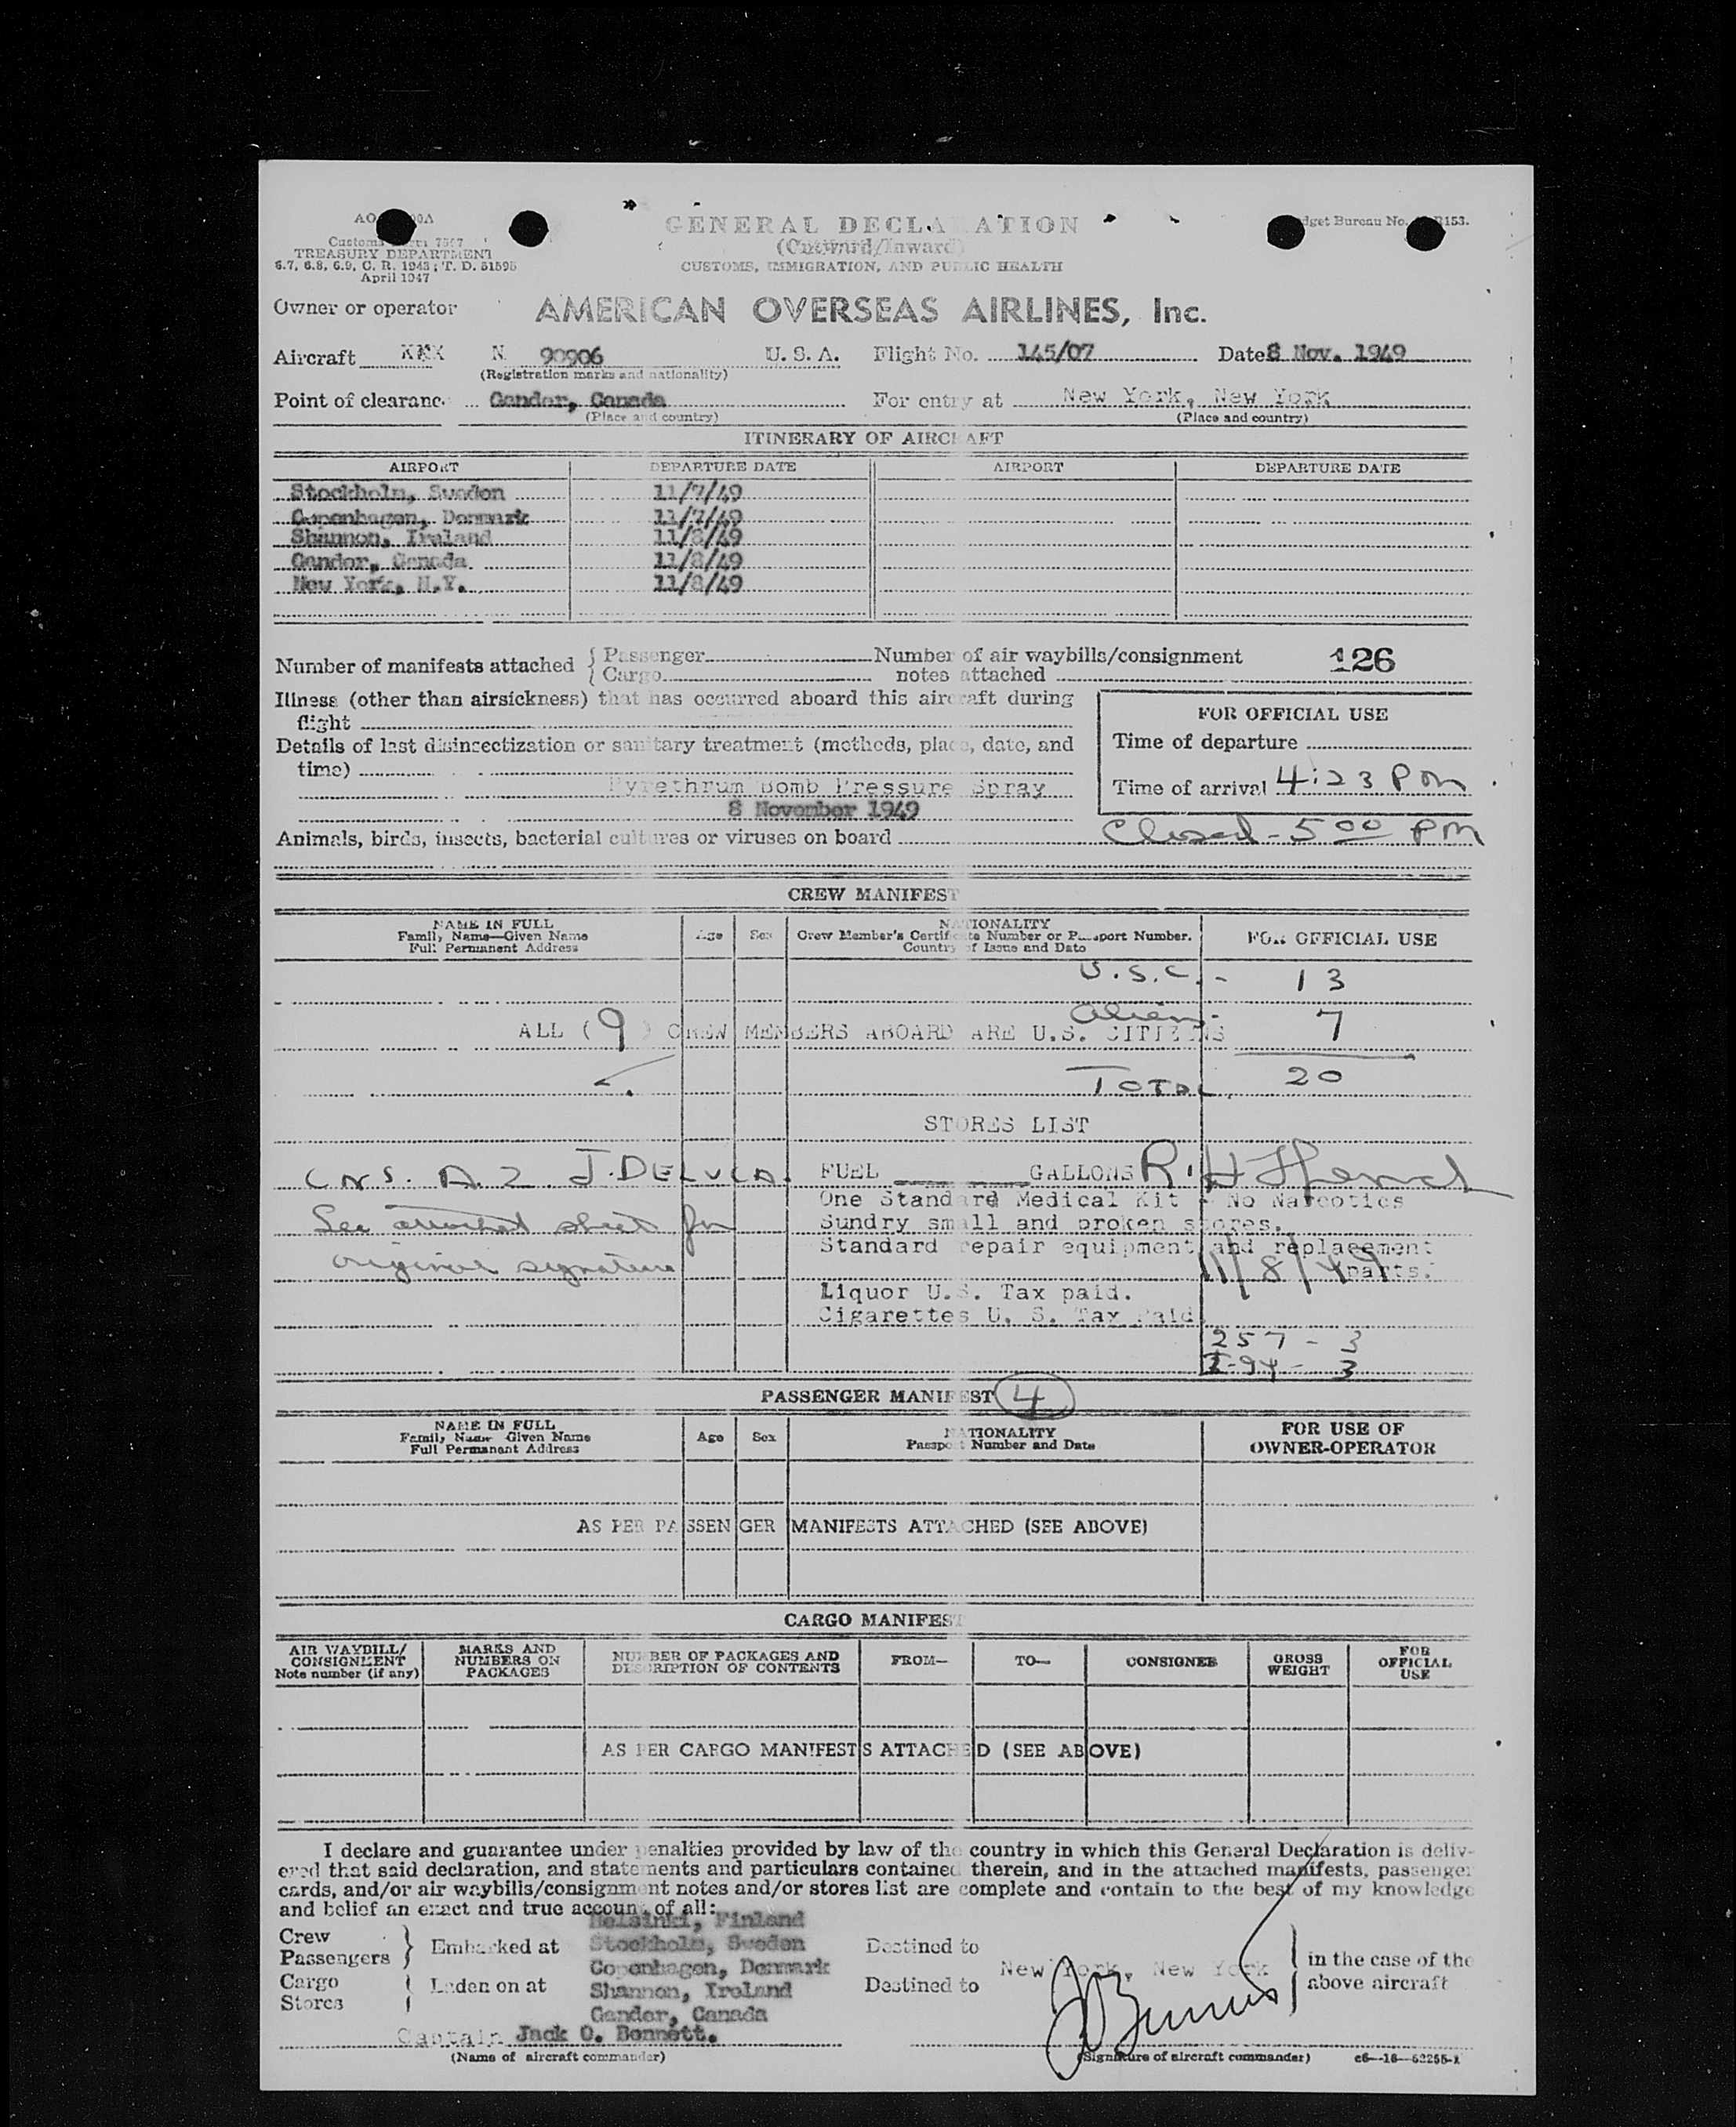 GENERAL DECLARATION
(Outward/Inward)
CUSTOMS, IMMIGRATION, AND PUBLIC HEALTH
Customs 7507
TREASURY DEPARTMENT
6.7, 6.8, 6.9, C. R. 1943; T. D. 51595
April 1947
Budget Bureau No.
Owner or operator AMERICAN OVERSEAS AIRLINES, Inc.
Aircraft N 90906 U. S. A. Flight No. 145/07 Date 8 Nov. 1949
(Registration marks and nationality)
Point of clearance Gander, Canada For entry at New York, New York
(Place and country) (Place and country)
ITINERARY OF AIRCRAFT
AIRPORT DEPARTURE DATE AIRPORT DEPARTURE DATE
Stockholm, Sweden 11/7/49
Copenhagen, Denmark 11/7/49
Shannon, Ireland 11/8/49
Gander, Canada 11/8/49
New York, N.Y. 11/8/49
Number of manifests attached { Passenger Number of air waybills/consignment 126
{ Cargo notes attached
Illness (other than airsickness) that has occurred aboard this aircraft during
flight
Details of last disinsectization or sanitary treatment (methods, place, date, and
time)
Pyrethrum Bomb Pressure Spray
8 November 1949
FOR OFFICIAL USE
Time of departure
Time of arrival 4:23 PM
Closed - 5 00 PM
Animals, birds, insects, bacterial cultures or viruses on board
CREW MANIFEST
NAME IN FULL
Family Name—Given Name
Full Permanent Address
Age Sex
NATIONALITY
Crew Member's Certificate Number or Passport Number.
Country of Issue and Date
FOR OFFICIAL USE
U.S.C. - 13
Aliens - 7
ALL (9) CREW MEMBERS ABOARD ARE U.S. CITIZENS
TOTAL 20
STORES LIST
J. DELUCA.
See attached sheet for
original signature
FUEL GALLONS
One Standard Medical Kit - No Narcotics
Sundry small and broken stores.
Standard repair equipment and replacement
parts.
11/8/49
Liquor U.S. Tax paid.
Cigarettes U. S. Tax Paid
257 - 3
I-94 - 3
PASSENGER MANIFEST 4
NAME IN FULL
Family Name Given Name
Full Permanent Address
Age Sex
NATIONALITY
Passport Number and Date
FOR USE OF
OWNER-OPERATOR
AS PER PASSENGER MANIFESTS ATTACHED (SEE ABOVE)
CARGO MANIFEST
AIR WAYBILL/
CONSIGNMENT
Note number (if any)
MARKS AND
NUMBERS ON
PACKAGES
NUMBER OF PACKAGES AND
DESCRIPTION OF CONTENTS
FROM— TO— CONSIGNEE
GROSS
WEIGHT
FOR
OFFICIAL
USE
AS PER CARGO MANIFESTS ATTACHED (SEE ABOVE)
I declare and guarantee under penalties provided by law of the country in which this General Declaration is deliv-
ered that said declaration, and statements and particulars contained therein, and in the attached manifests, passenger
cards, and/or air waybills/consignment notes and/or stores list are complete and contain to the best of my knowledge
and belief an exact and true account of all:
Crew
Passengers } Embarked at
Cargo
Stores } Laden on at
Helsinki, Finland
Stockholm, Sweden
Copenhagen, Denmark
Shannon, Ireland
Gander, Canada
Destined to
Destined to
New York, New York
in the case of the
above aircraft
Captain Jack O. Bennett.
(Name of aircraft commander) (Signature of aircraft commander) c6—16—52255-1